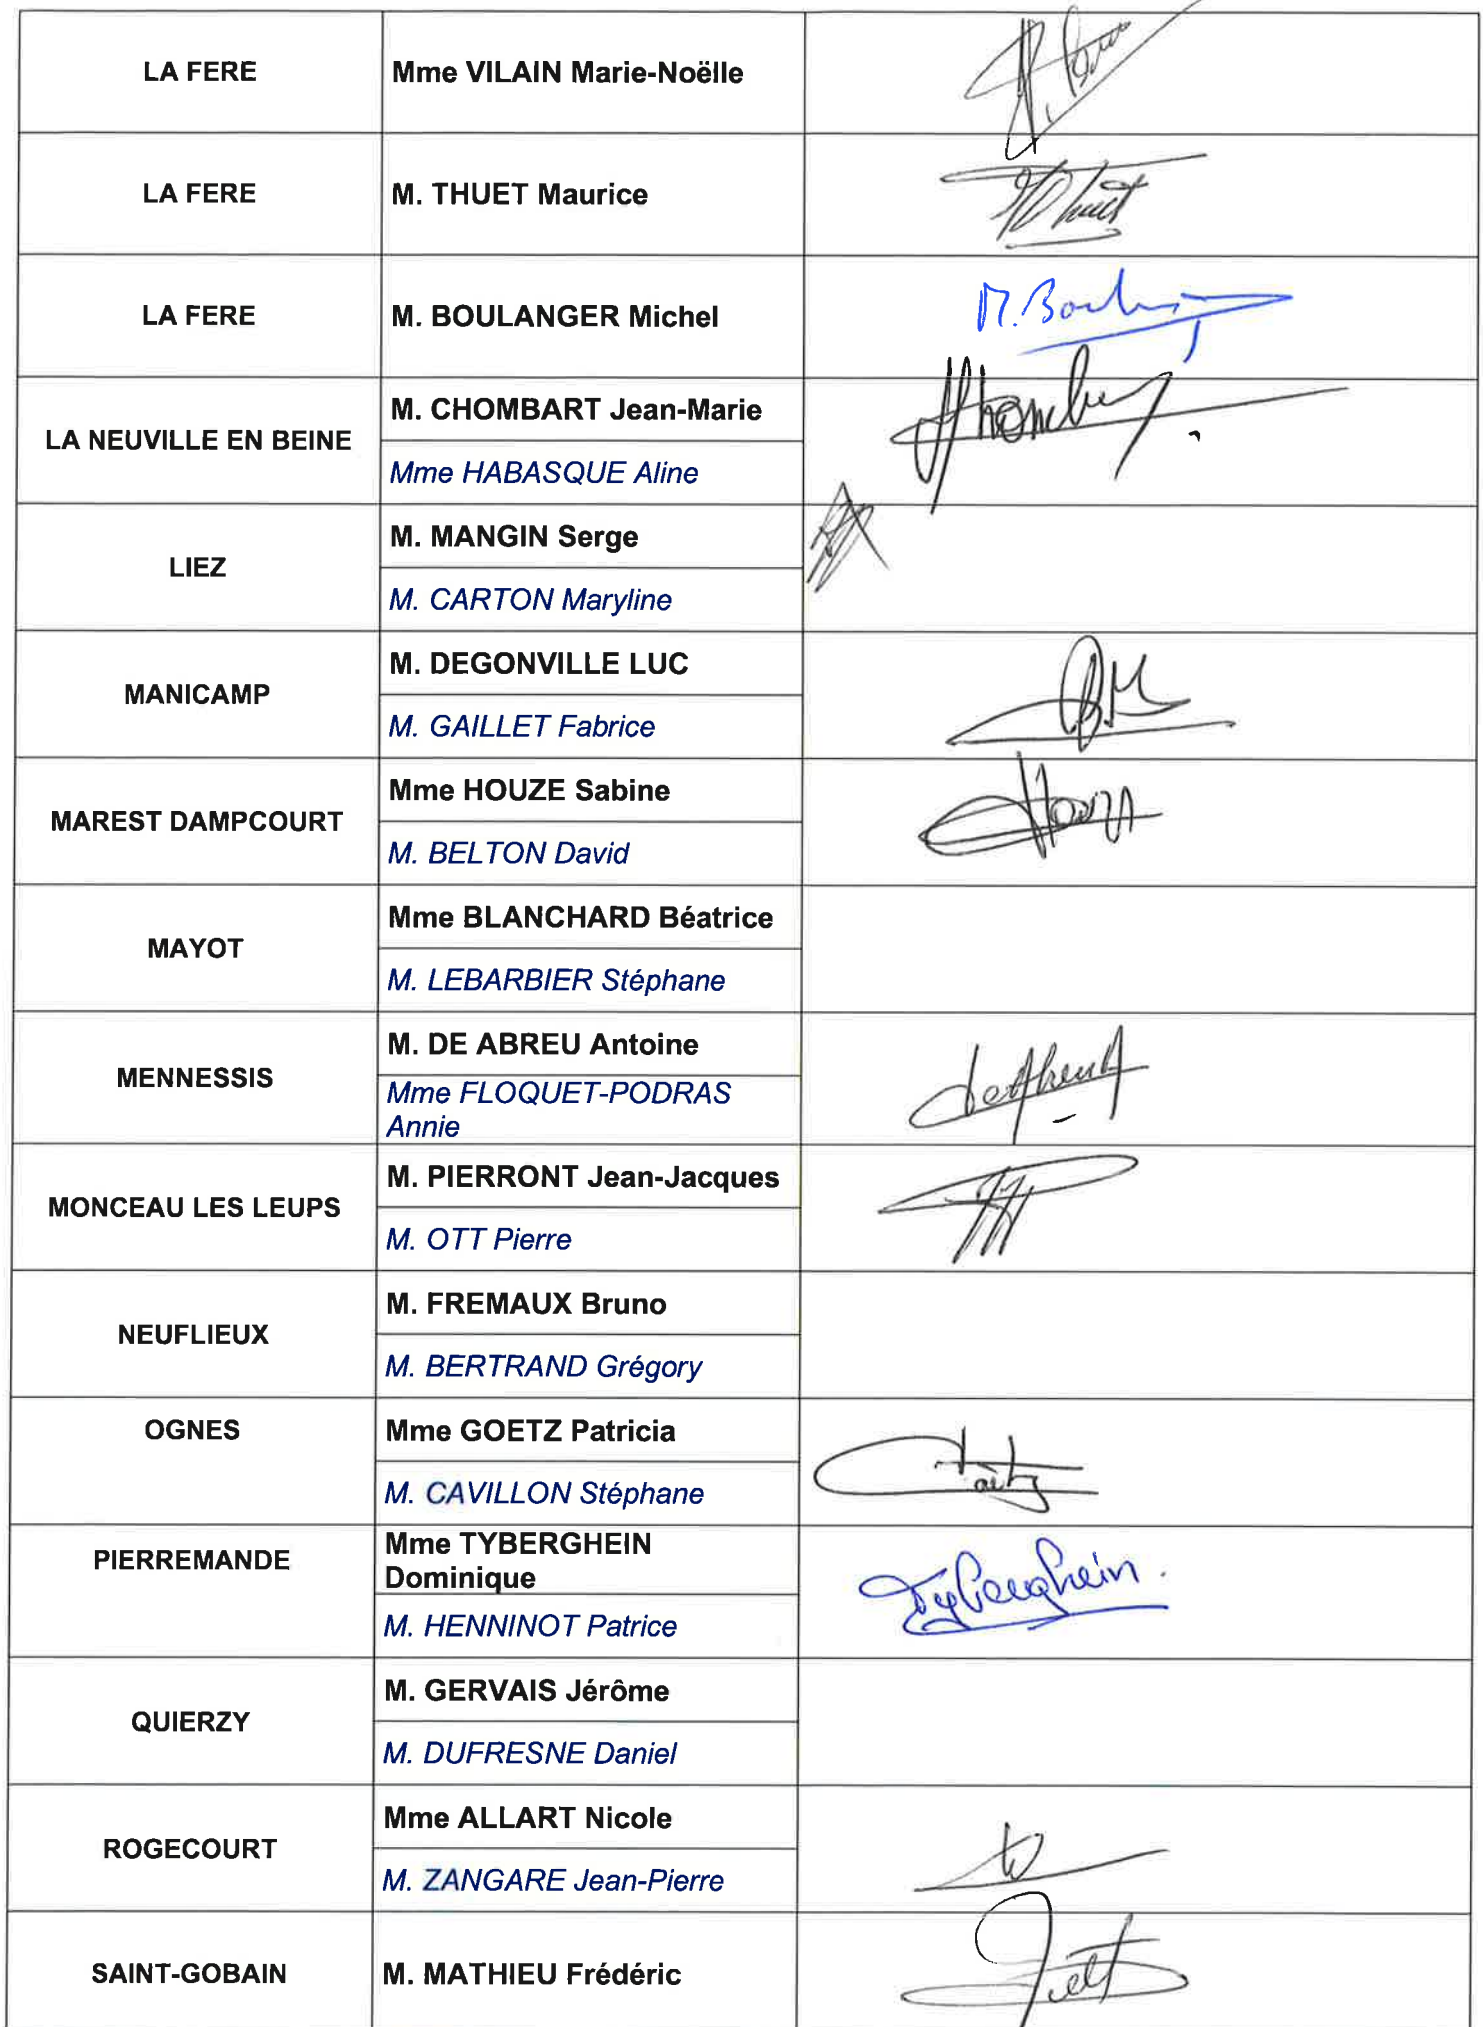 LA FERE
Mme VILAIN Marie-Noëlle
LA FERE
M. THUET Maurice
Thuet
LA FERE
M. BOULANGER Michel
LA NEUVILLE EN BEINE
M. CHOMBART Jean-Marie
Mme HABASQUE Aline
LIEZ
M. MANGIN Serge
M. CARTON Maryline
MANICAMP
M. DEGONVILLE LUC
M. GAILLET Fabrice
MAREST DAMPCOURT
Mme HOUZE Sabine
M. BELTON David
MAYOT
Mme BLANCHARD Béatrice
M. LEBARBIER Stéphane
MENNESSIS
M. DE ABREU Antoine
Mme FLOQUET-PODRAS
Annie
MONCEAU LES LEUPS
M. PIERRONT Jean-Jacques
M. OTT Pierre
NEUFLIEUX
M. FREMAUX Bruno
M. BERTRAND Grégory
OGNES
Mme GOETZ Patricia
M. CAVILLON Stéphane
PIERREMANDE
Mme TYBERGHEIN
Dominique
Tyberghein.
M. HENNINOT Patrice
QUIERZY
M. GERVAIS Jérôme
M. DUFRESNE Daniel
ROGECOURT
Mme ALLART Nicole
M. ZANGARE Jean-Pierre
SAINT-GOBAIN
M. MATHIEU Frédéric